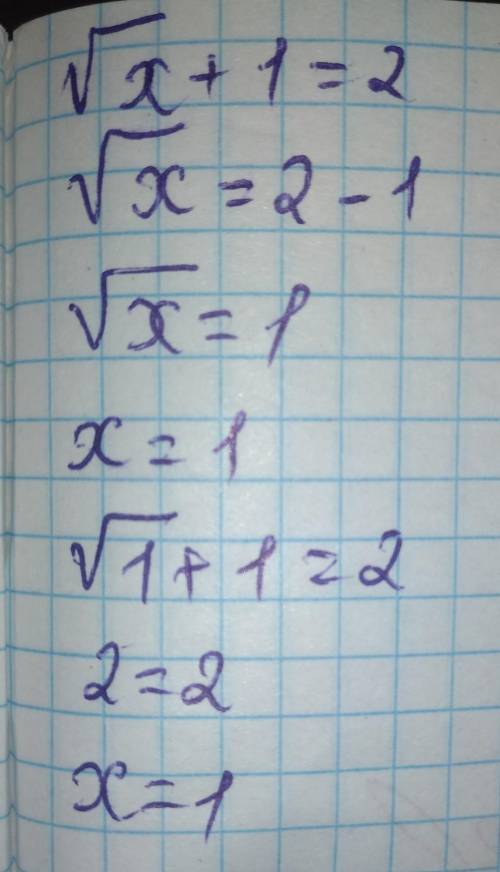 √x + 1 = 2
√x = 2 - 1
√x = 1
x = 1
√1 + 1 = 2
2 = 2
x = 1